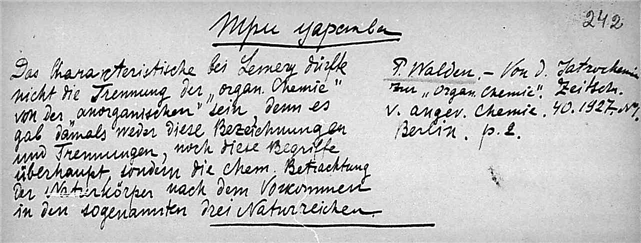 Три царства
242
Das Charakteristische bei Lemery dürfte
nicht die Trennung der „organ. Chemie"
von der „anorganischen" sein, denn es
gab damals weder diese Bezeichnungen
und Trennungen, noch diese Begriffe
überhaupt, sondern die chem. Betrachtung
der Naturkörper nach dem Vorkommen
in den sogenannten drei Naturreichen.
P. Walden. – Von d. Iatrochemie
zur „Organ. Chemie". Zeitsch.
v. angew. Chemie. 40. 1927. №1,
Berlin. p. 2.